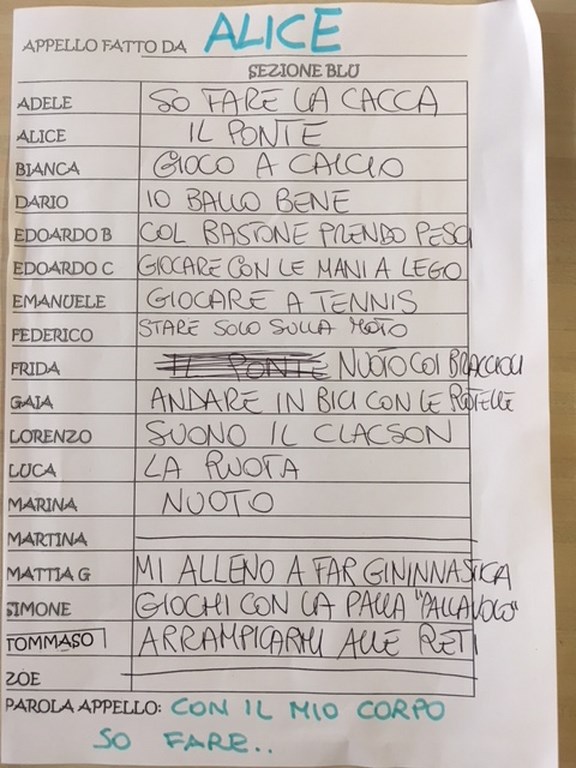 APPELLO FATTO DA ALICE
SEZIONE BLU
ADELE SO FARE LA CACCA
ALICE IL PONTE
BIANCA GIOCO A CALCIO
DARIO IO BALLO BENE
EDOARDO B COL BASTONE PRENDO PESCI
EDOARDO C GIOCARE CON LE MANI A LEGO
EMANUELE GIOCARE A TENNIS
FEDERICO STARE SOLO SULLA MOTO
FRIDA IL PONTE NUOTO COI BRACCIOLI
GAIA ANDARE IN BICI CON LE ROTELLE
LORENZO SUONO IL CLACSON
LUCA LA RUOTA
MARINA NUOTO
MARTINA
MATTIA G MI ALLENO A FAR GININNASTICA
SIMONE GIOCHI CON LA PALLA "PALLAVOLO"
TOMMASO ARRAMPICARMI ALLE RETI
ZOE
PAROLA APPELLO: CON IL MIO CORPO
SO FARE..